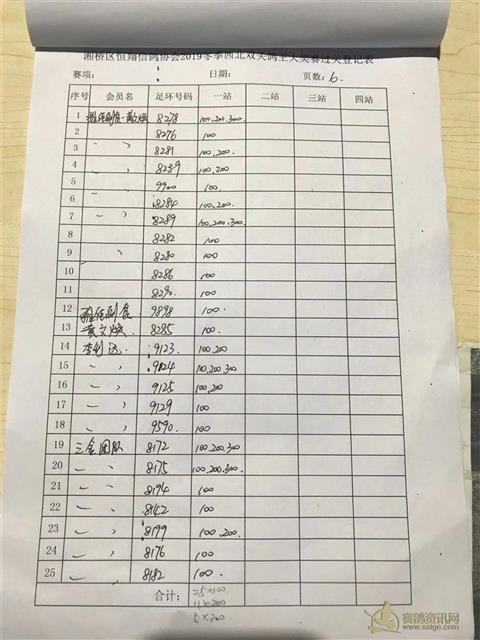 湘桥区恒翔信鸽协会2019冬季西北双关鸽王大奖赛过关登记表
赛项： 日期： 页数：6.
序号 会员名 足环号码 一站 二站 三站 四站
1 8278 100.200.300
2 8276 100
3 〃 8281 100.200
4 〃 8289 100.200
5 〃 9900 100.
6 〃 8284 100.200
7 〃 8289 100.200.300
8 8282 100
9 〃 8280 100
10 8286 100
11 8290. 100
12 9898 100.
13 黄文焕. 8285 100
14 李利达. 9123 100.200
15 〃 9124 100.200.300
16 〃 9125 100.200
17 〃 9129 100
18 〃 9590. 100
19 三金团队 8172 100.200.300
20 〃 8175 100.200.300
21 〃 8194 100
22 〃 8142 100
23 〃 8199 100.200.
24 〃 8176 100
25 〃 8182 100.
合计： 25×100
11×200
5×300
赛鸽资讯网
www.saige.com